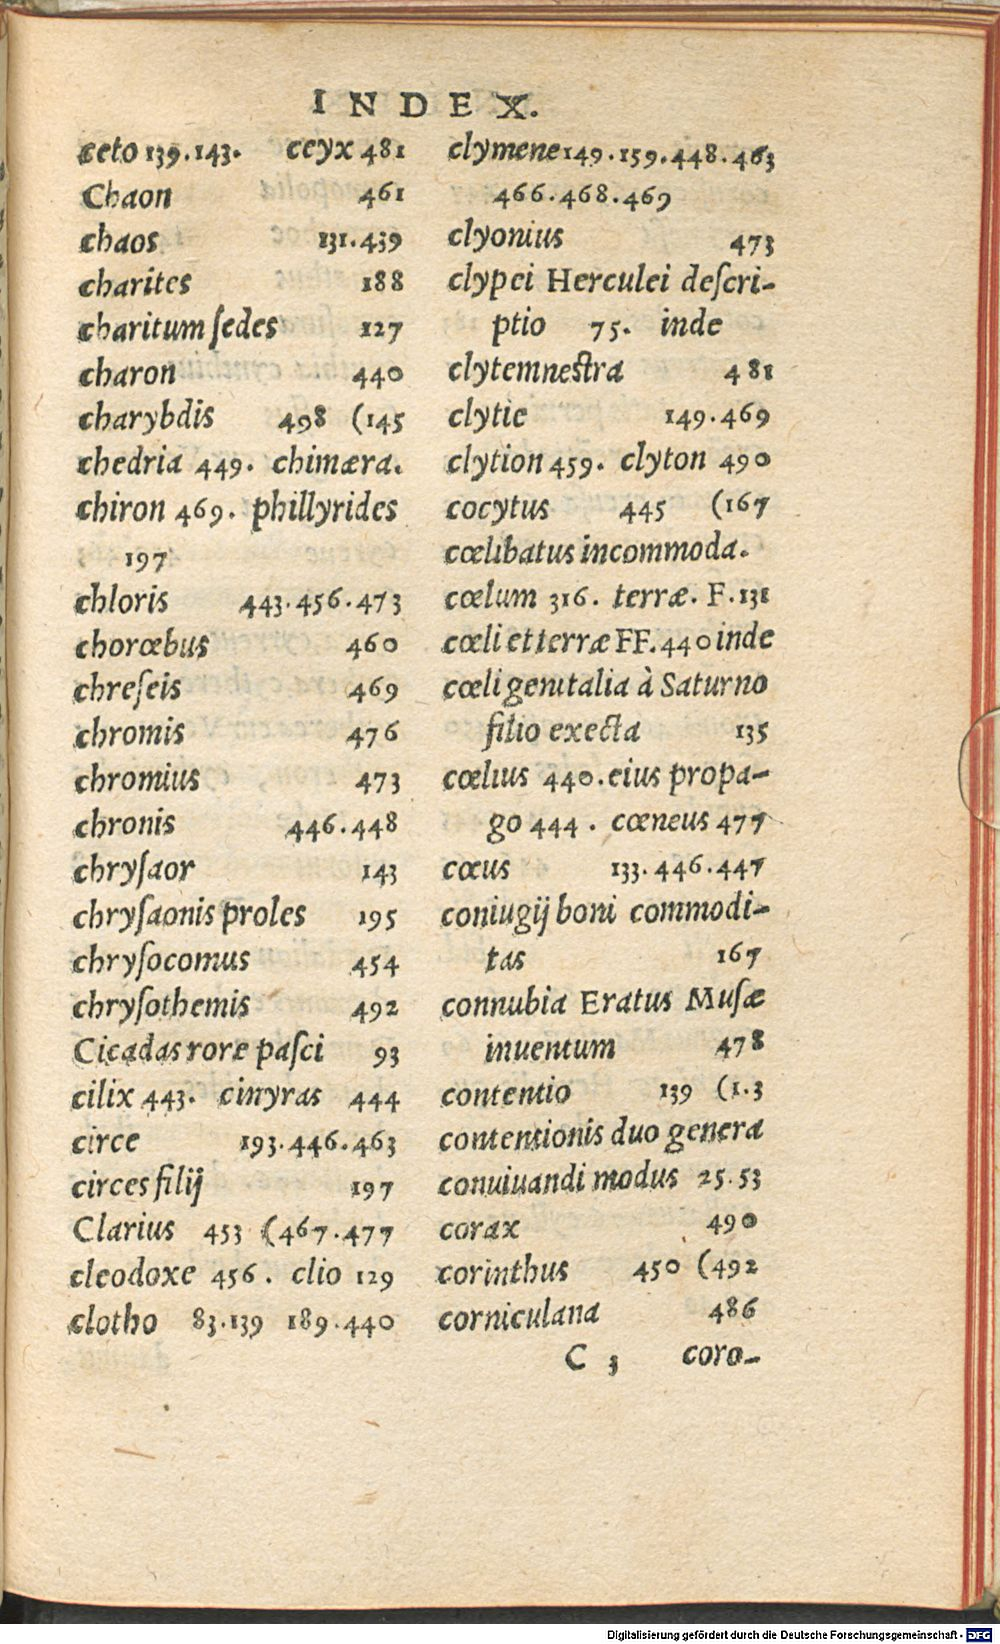 INDEX.
ceto 139.143. ceyx 481
Chaon 461
chaos 131.439
charites 188
charitum ſedes 127
charon 440
charybdis 498 (145
chedria 449. chimæra.
chiron 469. phillyrides
197
chloris 443.456.473
chorœbus 460
chreſeis 469
chromis 476
chromius 473
chronis 446.448
chryſaor 143
chryſaonis proles 195
chryſocomus 454
chryſothemis 492
Cicadas rore paſci 93
cilix 443. cinyras 444
circe 193.446.463
circes filij 197
Clarius 453 (467.477
cleodoxe 456. clio 129
clotho 83.139 189.440
clymene 149.159.448.463
466.468.469
clyonius 473
clypei Herculei deſcri-
ptio 75. inde
clytemneſtra 481
clytie 149.469
clytion 459. clyton 490
cocytus 445 (167
cœlibatus incommoda.
cœlum 316. terræ. F.131
cœli et terræ FF.440 inde
cœli genitalia à Saturno
filio execta 135
cœlius 440.eius propa-
go 444. cœneus 477
cœus 133.446.447
coniugij boni commodi-
tas 167
connubia Eratus Muſæ
inuentum 478
contentio 139 (1.3
contentionis duo genera
conuiuandi modus 25.53
corax 490
corinthus 450 (492
corniculana 486
C 3 coro-
Digitalisierung gefördert durch die Deutsche Forschungsgemeinschaft - DFG